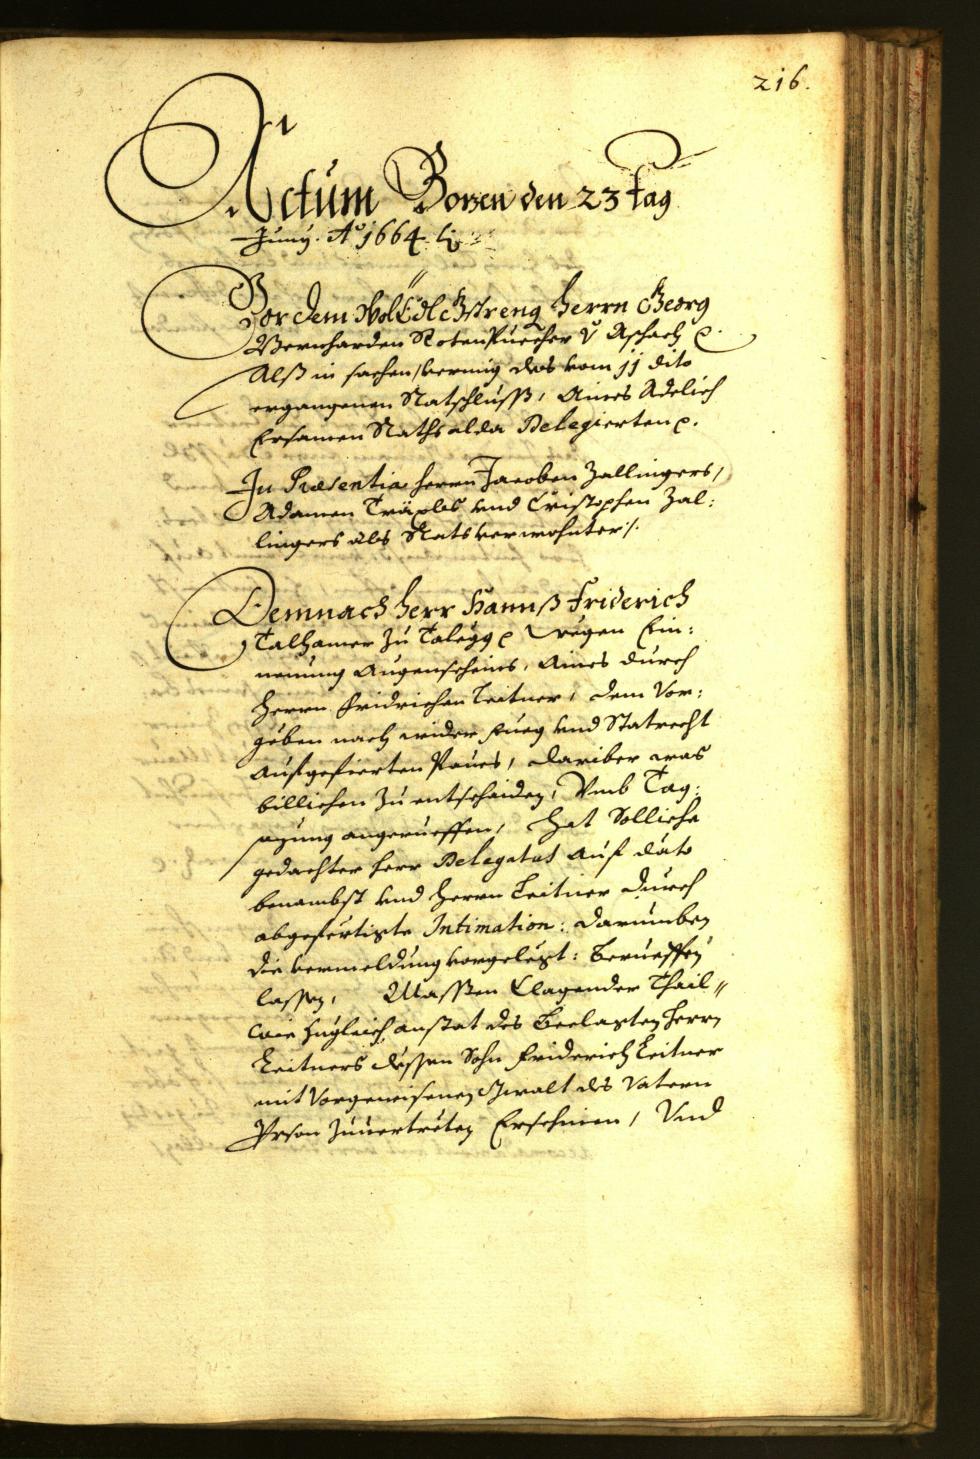 216.
Actum Bozen den 23 tag
Juny. Aō 1664
Vor dem Wol Edl Gstreng herrn Georg
Bernharden Rotenpuecher v Aschach ꝛ.
Alß in sachen, vermüg des vom 11 dito
ergangenen Ratschluss, Aines Adelich
Ersamen Raths alda Delegierten ꝛ.
In Præsentia herrn Jacoben Zallingers,
Adamen Träxls vnd Cristophen Zal:
lingers als Rats verwohnter ./.
Demnach herr Hannß Friderich
Talhamer zu Talegg ꝛ wegen Ein:
nemung Augenscheins, Aines durch
herrn Fridrichen Leitner, dem Vor:
geben nach wider fueg vnd Statrecht
aufgefierten Paues, dariber was
billichen zu entscheiden, Vmb Tag:
sazung angerueffen, Hat Solliche
gedachter herr Delegatus auf dato
benambst vnd herrn Leitner durch
abgefertigte Intimation: darumben
die vermeldung vorgelegt: beruefffen
lassen, Massen Clagender Thail
wie zugleich anstat des Beclagten herrn
Leitners dessen Sohn Friderich Leitner
mit Vorgewisenen Gwalt des Vatern
Person zuuertreten Erschinen, Vnd